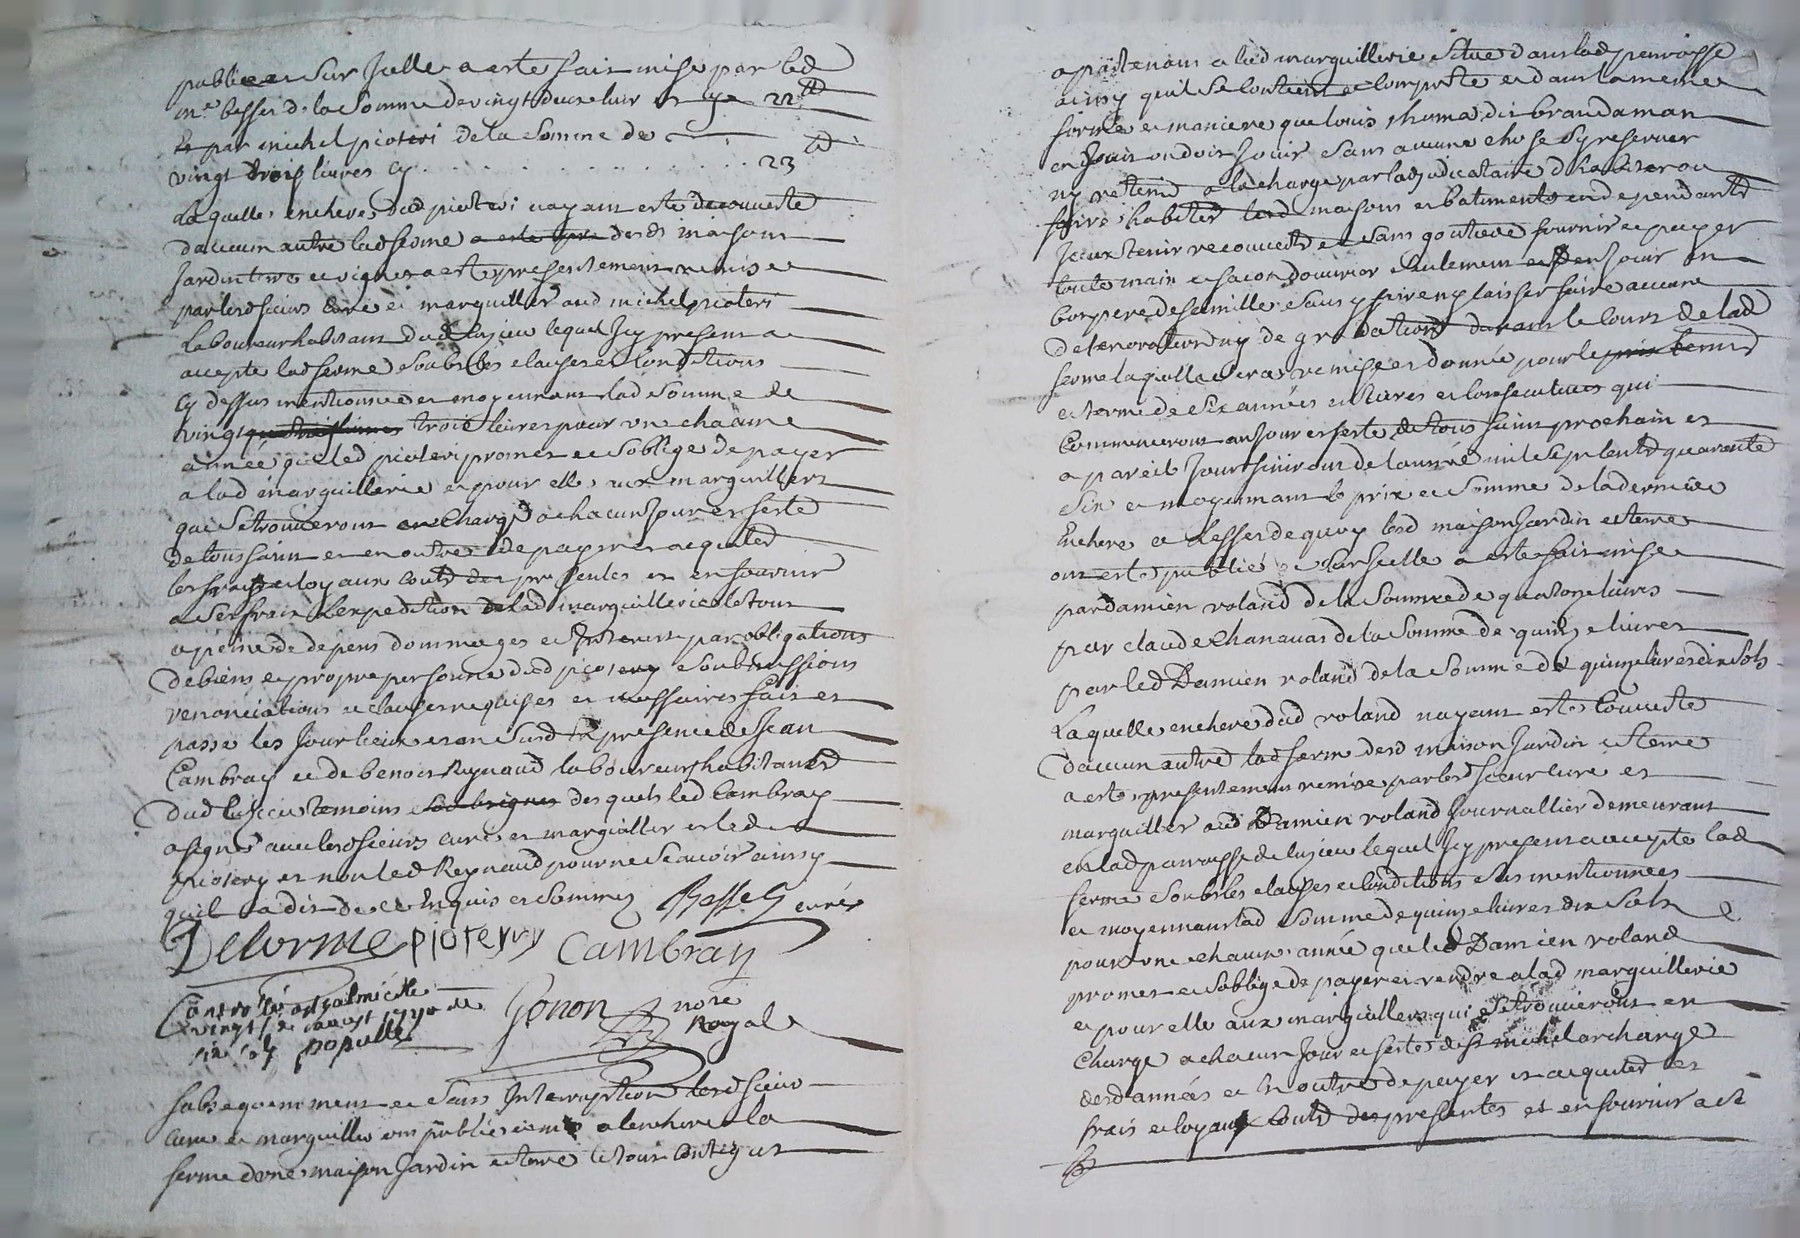 publiée et sur Icelle a esté fait mise par led
me besset de la somme de vingt deux livres cy 22 lt
Et par michel pioteri de la somme de
vingt trois livres cy . . . . . . . . 23 lt
Laquelle enchere dud pioteri nayant esté decouverte
daucun autre lad ferme desd maisons
Jardin terre et vignes a esté presentement remise
par lesd sieurs curé et marguillier aud michel pioteri
laboureur habitant dud lusieu lequel Icy present a
accepté lad ferme soubs les clauses et conditions
cy dessus mentionnées et moyennant lad somme de
vingt trois livres pour une chacune
année que led pioteri promet et soblige de payer
a lad marguillerie et pour elle aux marguilliers
qui se trouveront en charge a chacun jour et feste
de toussaint et en outre de payer et acquiter
les frais et loyaux couts des presentes et en fournir
a ses frais lexpedition a lad marguillerie le tout
a peine de depens dommages et Interests par obligations
de biens et propre personne dud piotery soubmissions
renonciations et clauses requises et necessaires fait et
passé les Jour lieu et an susd En presence de Jean
Cambray et de benoit Reynaud laboureurs habitants
dud lusieu temoins desquels led Cambray
a signé avec lesd sieurs curé et marguillier et led
piotery et non led Reynaud pour ne scavoir ainsy
quil a dit de ce Enquis et sommé Besset curé
Delorme piotery Cambray
Controllé a st galmier le
vingt aoust 1740
six sols populle
Gonon nore
Royal
subsequemment et sans Interruption lesd sieurs
curé et marguillier ont publié et mis a lenchere la
ferme dune maison Jardin et terre le tout contigut
appartenant a lad marguillerie situé dans lad parroisse
ainsy quil se contient et comporte et dans la meme
forme et maniere que louis thoma dit brandaman
en Jouit ou doit Jouir sans aucune chose sy reserver
ny retenir a la charge par ladjudicataire dhabiter ou
faire habiter lesd maisons et batiments en dependants
Iceux tenir recouverts et sans goutiere fournir et payer
toute main et facon douvrier seulement et den Jouir en
bon pere de famille sans y faire ny laisser faire aucune
deterioration ny degradations durant le cours de lad
ferme laquelle sera remise et donnée pour le
et terme de six années entieres et consecutives qui
Commenceront au Jour et feste de tous saint prochain et
a pareil Jour finiront de lannée mil sept cents quarante
six et moyennant le prix et somme de la derniere
Enchere a leffet de quoy lesd maison Jardin et terre
ont estés publiés et sur Icelle a esté fait mise
par damien roland de la somme de quatorze livres
par claude Chanavas de la somme de quinze livres
par led Damien roland de la somme de quinze livres dix sols
Laquelle enchere dud roland nayant esté Couverte
daucun autre lad ferme desd maison Jardin et terre
a esté presentement remise par lesd sieur curé et
marguillier aud Damien roland Journallier demeurant
en lad parroisse de lusieu lequel Icy present a accepté lad
ferme soubs les clauses et conditions sus mentionnées
et moyennant lad somme de quinze livres dix sols
pour une chacune année que led Damien roland
promet et soblige de payer et rendre a lad marguillerie
et pour elle aux marguilliers qui se trouveront en
Charge a chacun Jour et feste de st michel archange
desd années et En outre de payer et acquiter les
frais et loyaux couts des presentes et en fournir a ses